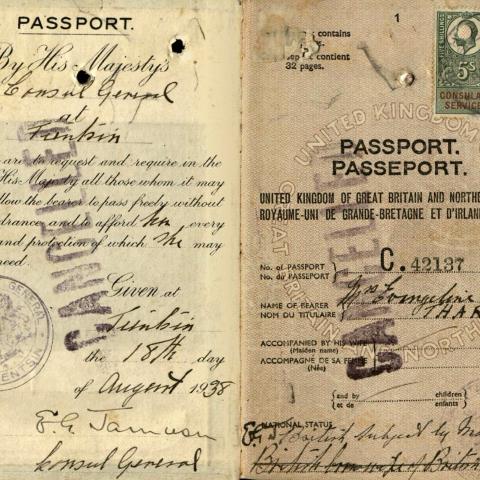 PASSPORT.
By His Majesty's
Consul General
at
Tientsin
are to request and require in the
His Majesty all those whom it may
llow the bearer to pass freely without
drance and to afford her every
and protection of which she may
need.
Given at
Tientsin
the 18th day
of August 1938
Consul General
CANCELLED
GENERAL
TIENTSIN
1
contains
contient
32 pages.
5s
CONSULAR
SERVICE
UNITED KINGDOM
PASSPORT.
PASSEPORT.
UNITED KINGDOM OF GREAT BRITAIN AND NORTHE
ROYAUME-UNI DE GRANDE-BRETAGNE ET D'IRLAN
No. of PASSPORT
No. du PASSEPORT
C. 42137
NAME OF BEARER
NOM DU TITULAIRE
Mrs Evangeline
ACCOMPANIED BY HIS WIFE
(Maiden name)
ACCOMPAGNE DE SA FEMME
(Née)
CANCELLED
(and by
(et de
children)
enfants)
NATIONAL STATUS
British subject by
British born wife of British